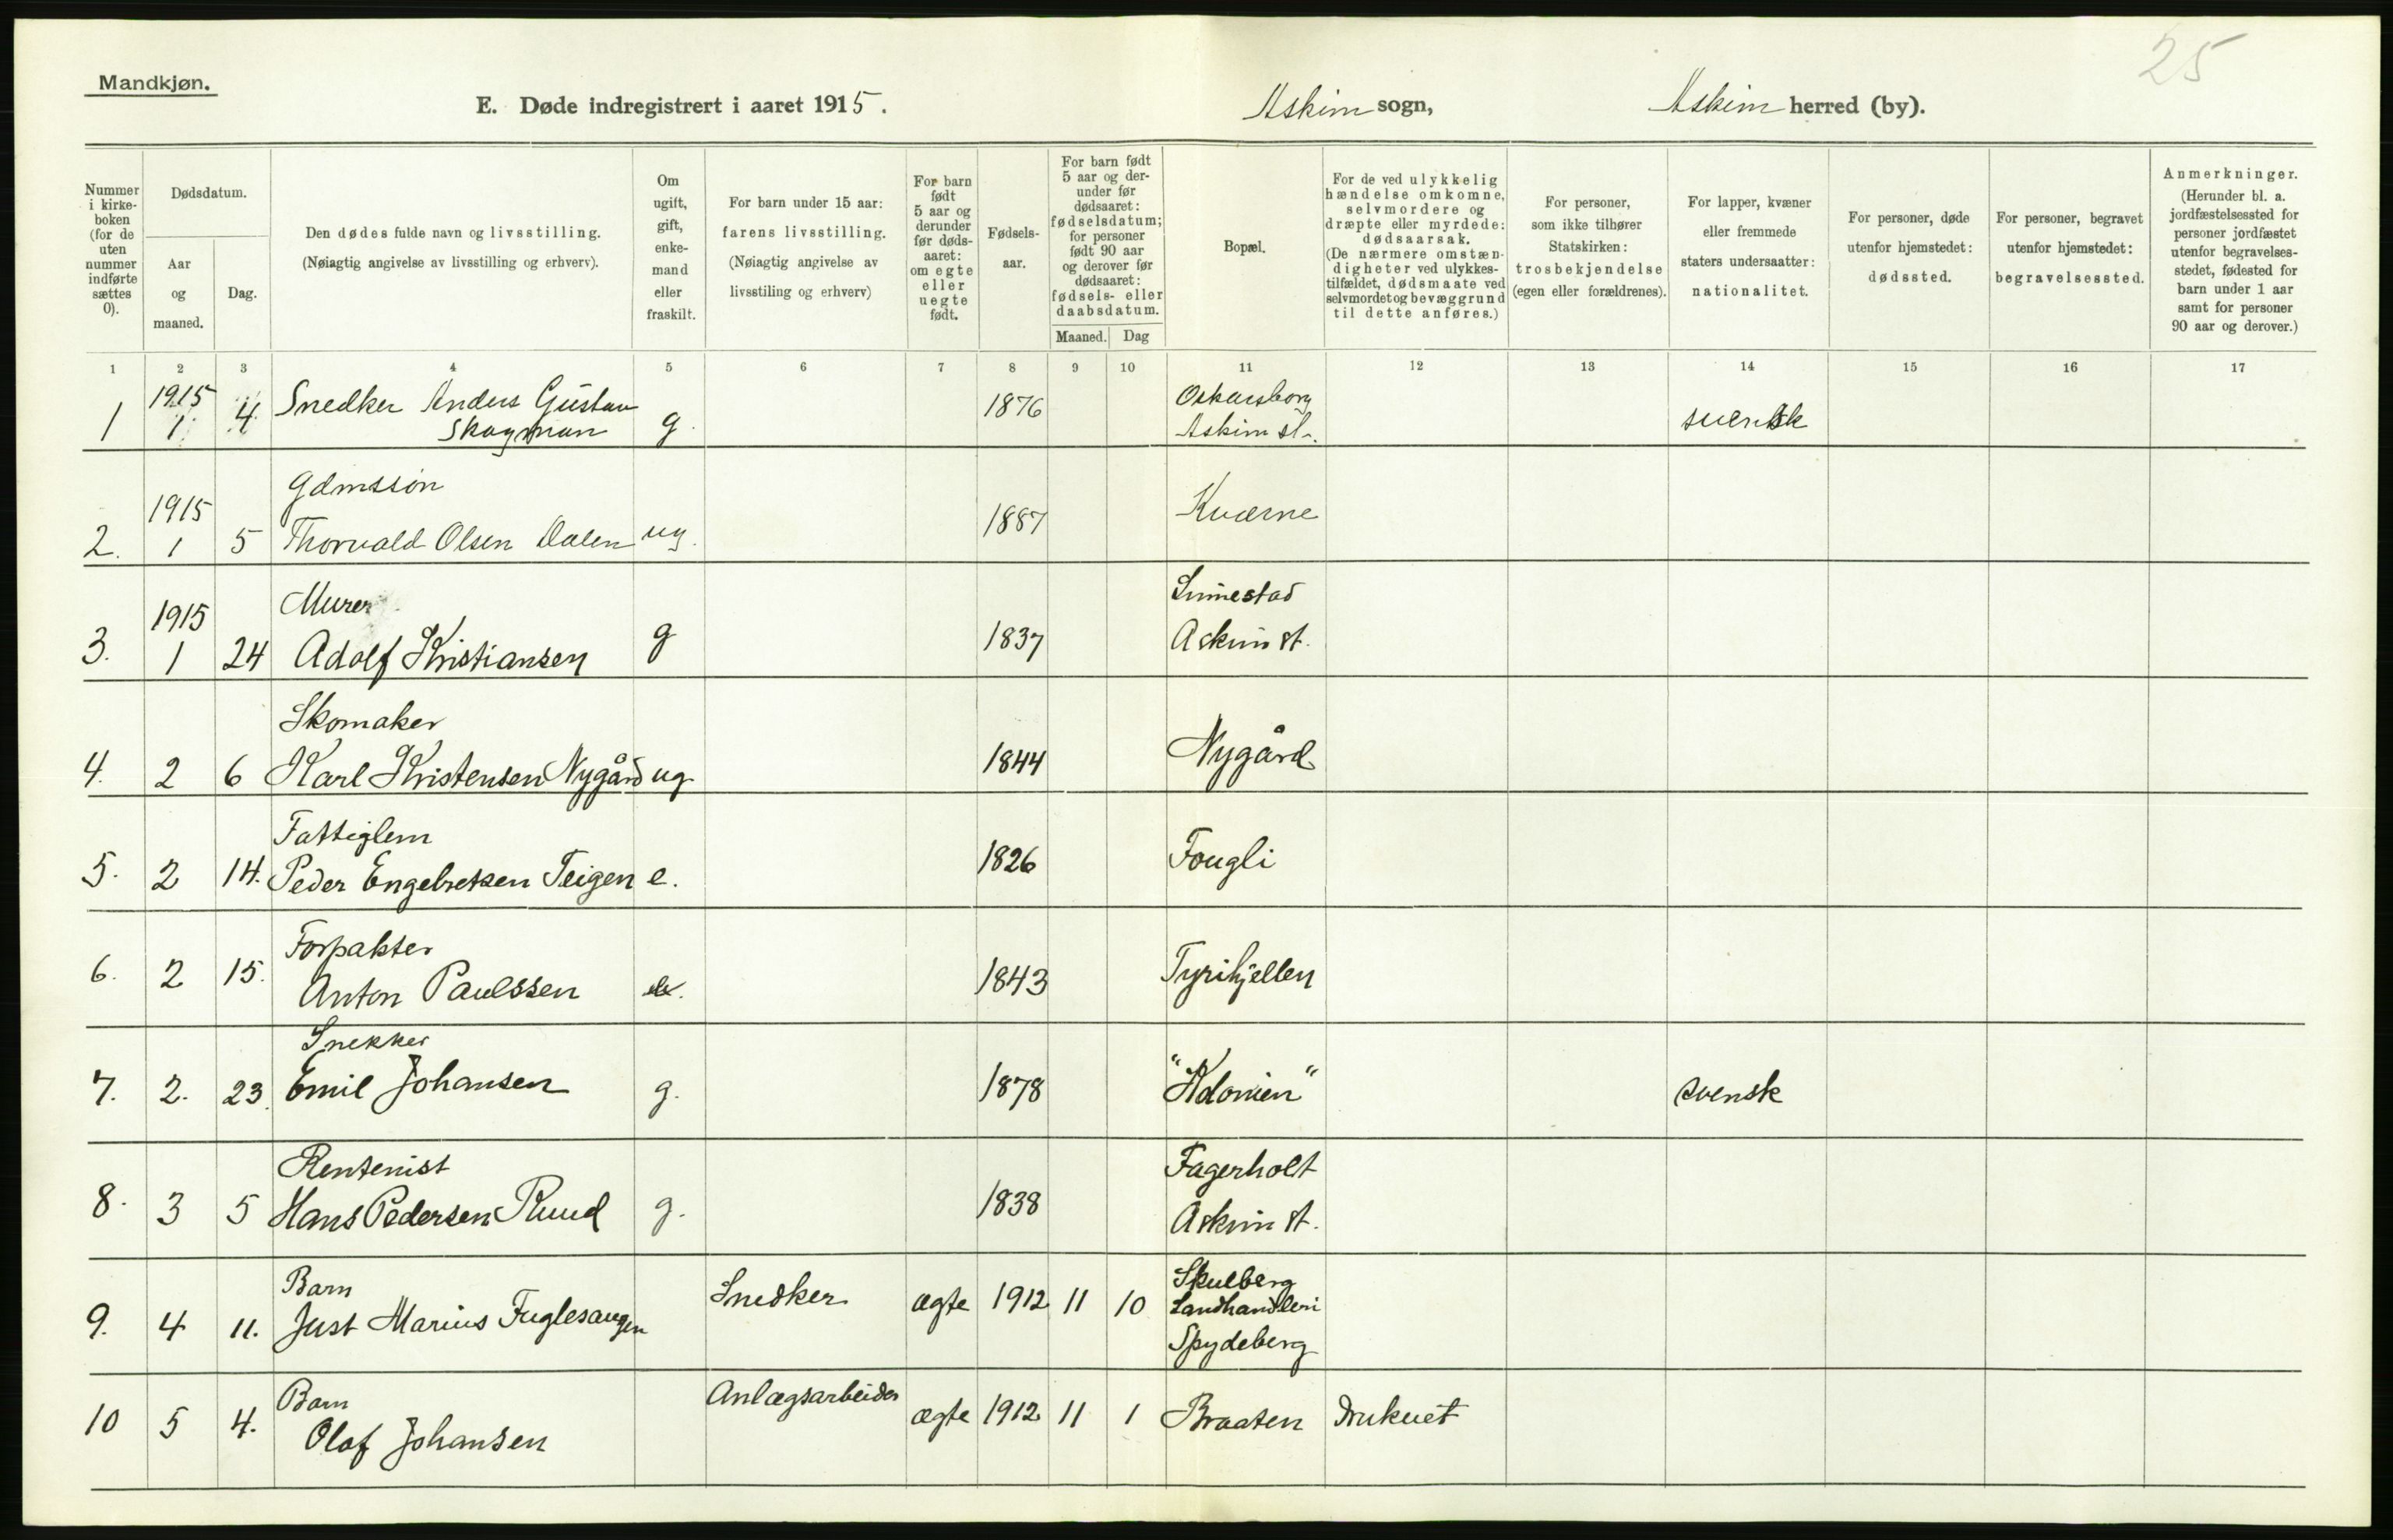 25
Mandkjøn.
E. Døde indregistrert i aaret 1915.
Askim sogn,
Askim herred (by).
Nummer i kirke-boken (for de uten nummer indførte sættes 0).
Dødsdatum.
Aar og maaned.
Dag.
Den dødes fulde navn og livsstilling.
(Nøiagtig angivelse av livsstilling og erhverv).
Om ugift, gift, enke-mand eller fraskilt.
For barn under 15 aar:
farens livsstilling.
(Nøiagtig angivelse av livsstiling og erhverv)
For barn født 5 aar og derunder før døds-aaret: om egte eller uegte født.
Fødsels-aar.
For barn født 5 aar og der-under før dødsaaret: fødselsdatum; for personer født 90 aar og derover før dødsaaret: fødsels- eller daabsdatum.
Maaned. Dag
Bopæl.
For de ved ulykkelig hændelse omkomne, selvmordere og dræpte eller myrdede: dødsaarsak.
(De nærmere omstæn-digheter ved ulykkes-tilfældet, dødsmaate ved selvmordet og bevæggrund til dette anføres.)
For personer, som ikke tilhører Statskirken: trosbekjendelse (egen eller forældrenes).
For lapper, kvæner eller fremmede staters undersaatter: nationalitet.
For personer, døde utenfor hjemstedet: dødssted.
For personer, begravet utenfor hjemstedet: begravelsessted.
Anmerkninger.
(Herunder bl. a. jordfæstelsessted for personer jordfæstet utenfor begravelses-stedet, fødested for barn under 1 aar samt for personer 90 aar og derover.)
1 2 3 4 5 6 7 8 9 10 11 12 13 14 15 16 17
1915 Snedker Anders Gustav 1876 Oskarsborg
1 1 4 Skogman g. Askim st. svensk
Gdmssøn
1915 1887 Kværne
2. 1 5 Thorvald Olsen Dalen ug.
Murer
1915 1837
3. 1 24 Adolf Kristiansen g Askim st.
Skomaker
4. 2 6 Karl Kristensen Nygård ug 1844 Nygård
Fattiglem
5. 2 14. Peder Engebretsen Teigen e. 1826 Fougli
Forpakter
6. 2 15. Anton Paulssen 1843 Tyrihjellen
Snekker
7. 2. 23. Emil Johansen g. 1878 "Kolonien" svensk
Rentenist Fagerholt
8. 3 5 Hans Pedersen Ruud g. 1838 Askim st.
Barn Skulberg
9. 4 11. Just Marius Fuglesangen Snedker ægte 1912 11 10 Landhandleri
Spydeberg
Barn Anlægsarbeider
10 5 4. Olaf Johansen ægte 1912 11 1 Braaten druknet